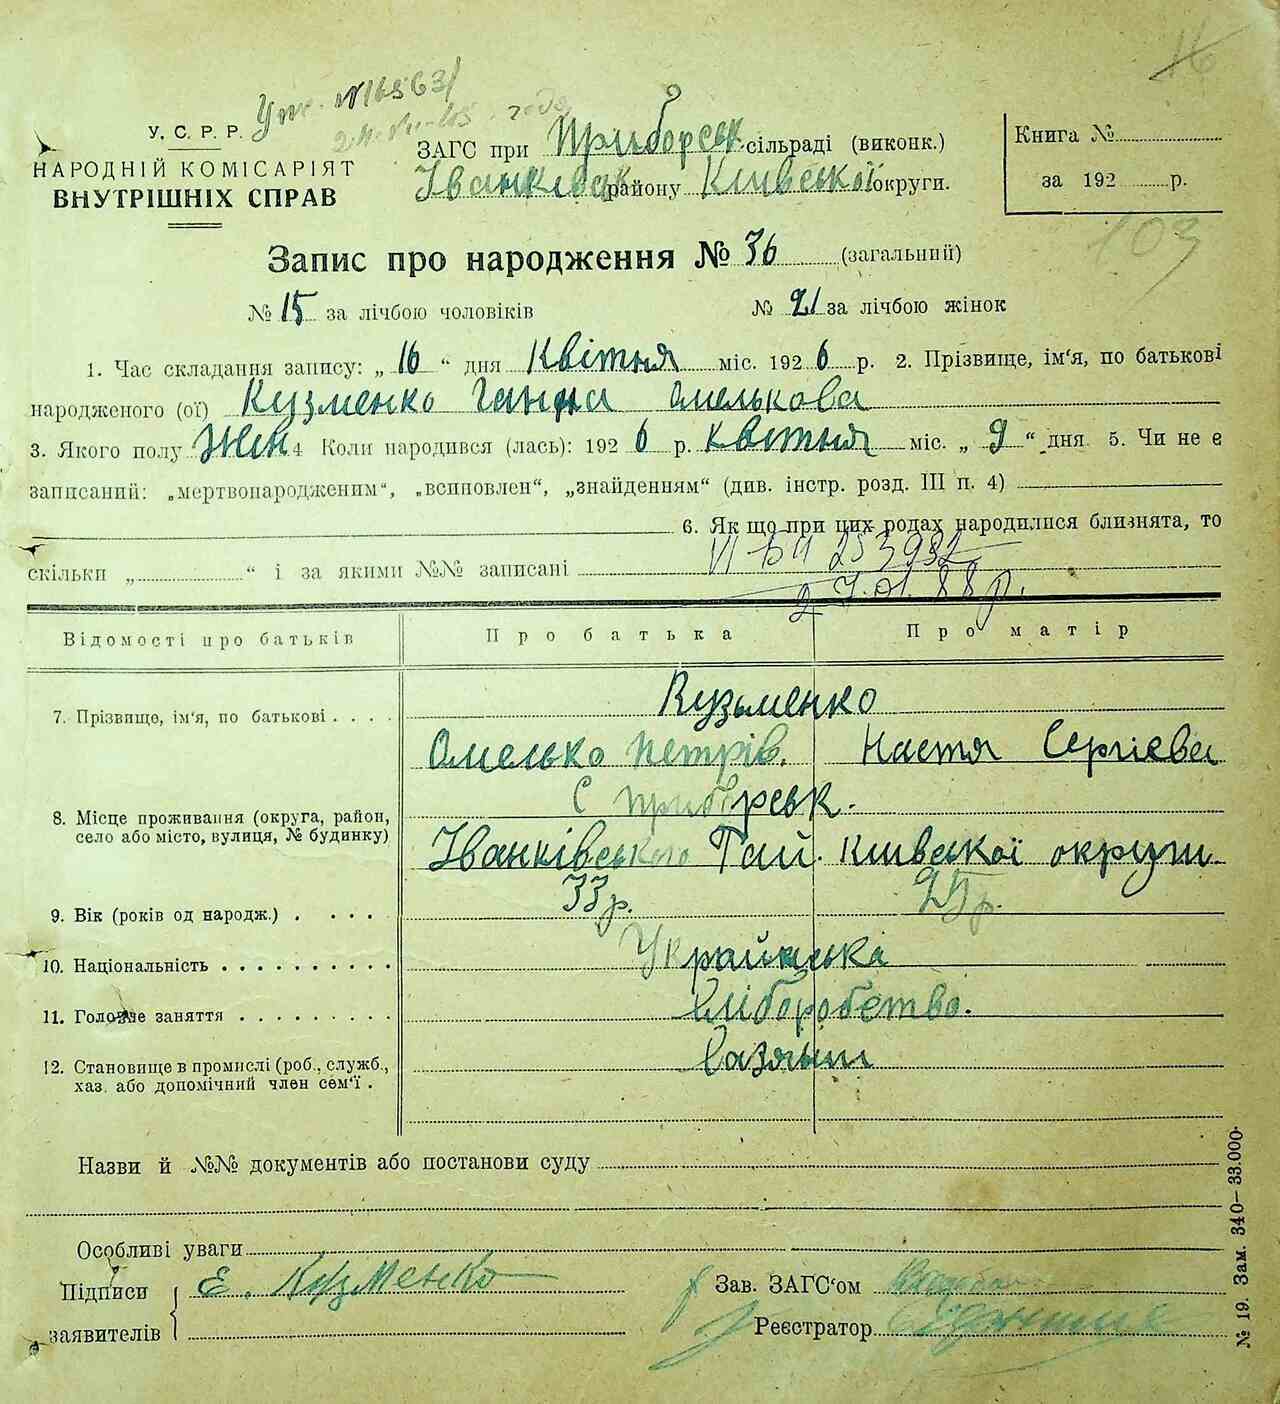 16
У. С. Р. Р.
НАРОДНІЙ КОМІСАРІЯТ
ВНУТРІШНІХ СПРАВ
ЗАГС при Приборськ сільраді (виконк.)
Іванківськ району Київської округи.
Книга №
за 192 р.
103
Запис про народження № 36 (загальний)
№ 15 за лічбою чоловіків № 21 за лічбою жінок
1. Час складання запису: „ 16 “ дня Квітня міс. 192 6 р. 2. Прізвище, ім'я, по батькові
народженого (ої) Кузменко Ганна Омелькова
3. Якого полу Жен 4 Коли народився (лась): 192 6 р. Квітня міс. „ 9 “ дня 5. Чи не е
записаний: „мертвонародженим“, „всиновлен“, „знайденням“ (див. інстр. розд. III п. 4)
6. Як що при цих родах народилися близнята, то
скільки „ “ і за якими №№ записані
VI БИ 253982
27.01.88р.
Відомості про батьків Про батька Про матір
7. Прізвище, ім'я, по батькові Кузьменко
Омелько Петрів. Настя Сергієва
8. Місце проживання (округа, район,
село або місто, вулиця, № будинку)
С Приборськ.
Іванківського Рай. Київської округи
9. Вік (років од народж.) 33р. 25р.
10. Національність Українська
11. Головне заняття Хліборобство.
12. Становище в промислі (роб., служб.,
хаз. або допомічний член сем'ї .
Хазяьин
Назви й №№ документів або постанови суду
Особливі уваги
Підписи
заявителів
Е. Кузменко
Зав. ЗАГС'ом
Реєстратор
№ 19. Зам. 340—33.000.